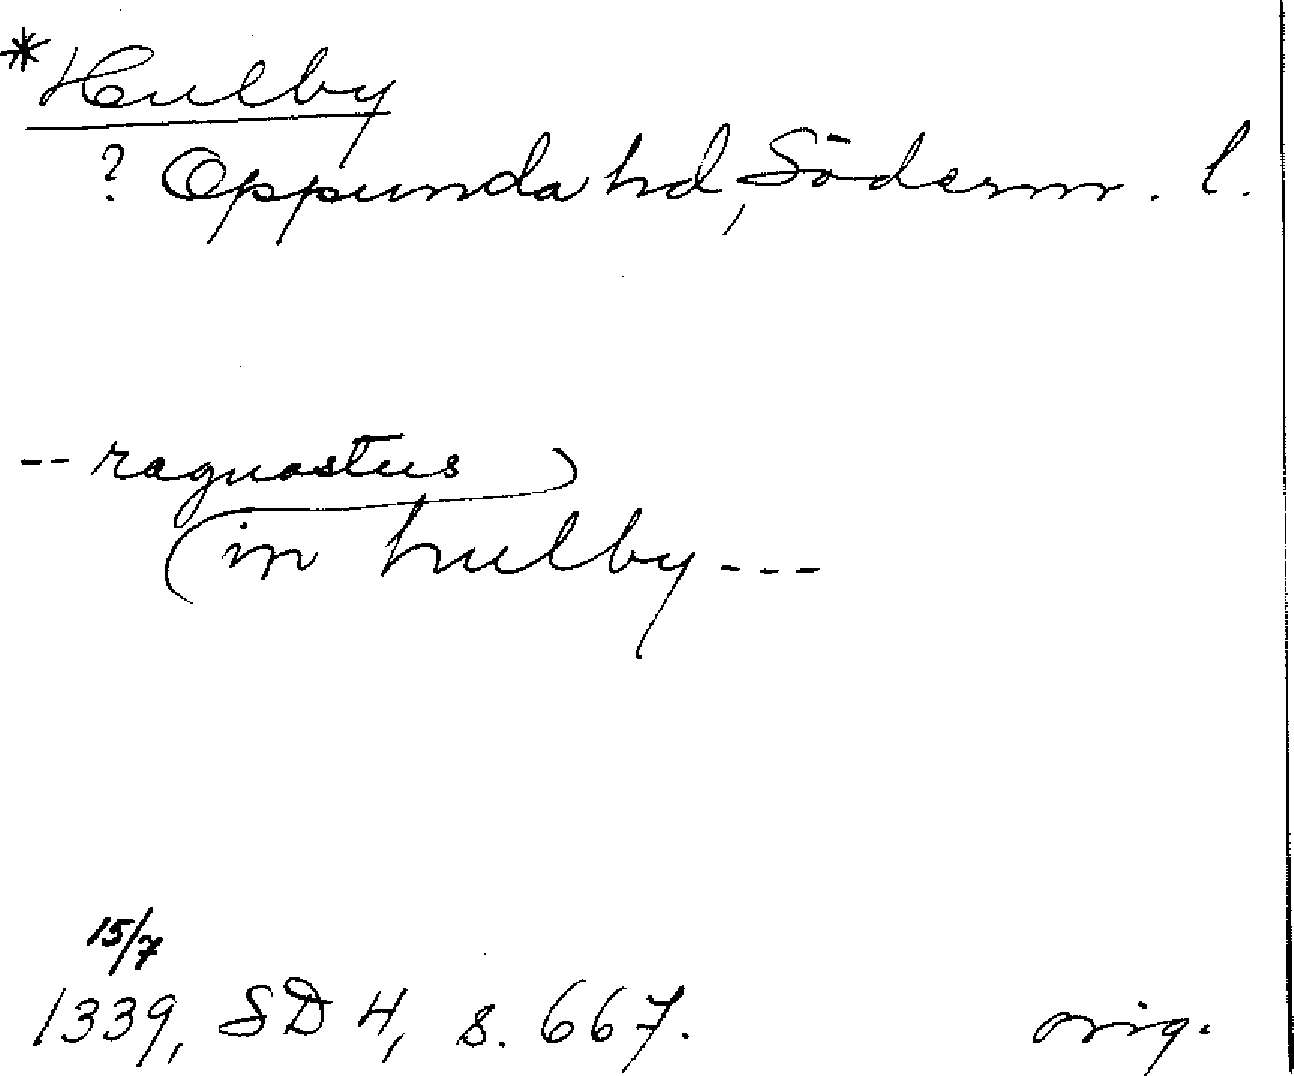 *Hulby
? Oppunda hd, Söderm. l.
-- ragnastus
in hulby ---
15/7
1339, SD 4, s. 667.
orig.